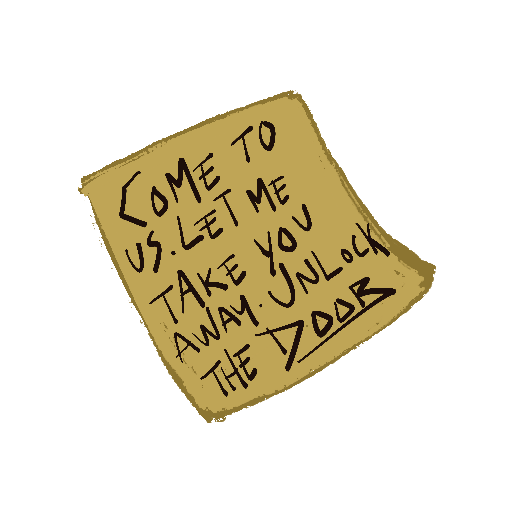 COME TO
US. LET ME
TAKE YOU
AWAY. UNLOCK
THE DOOR